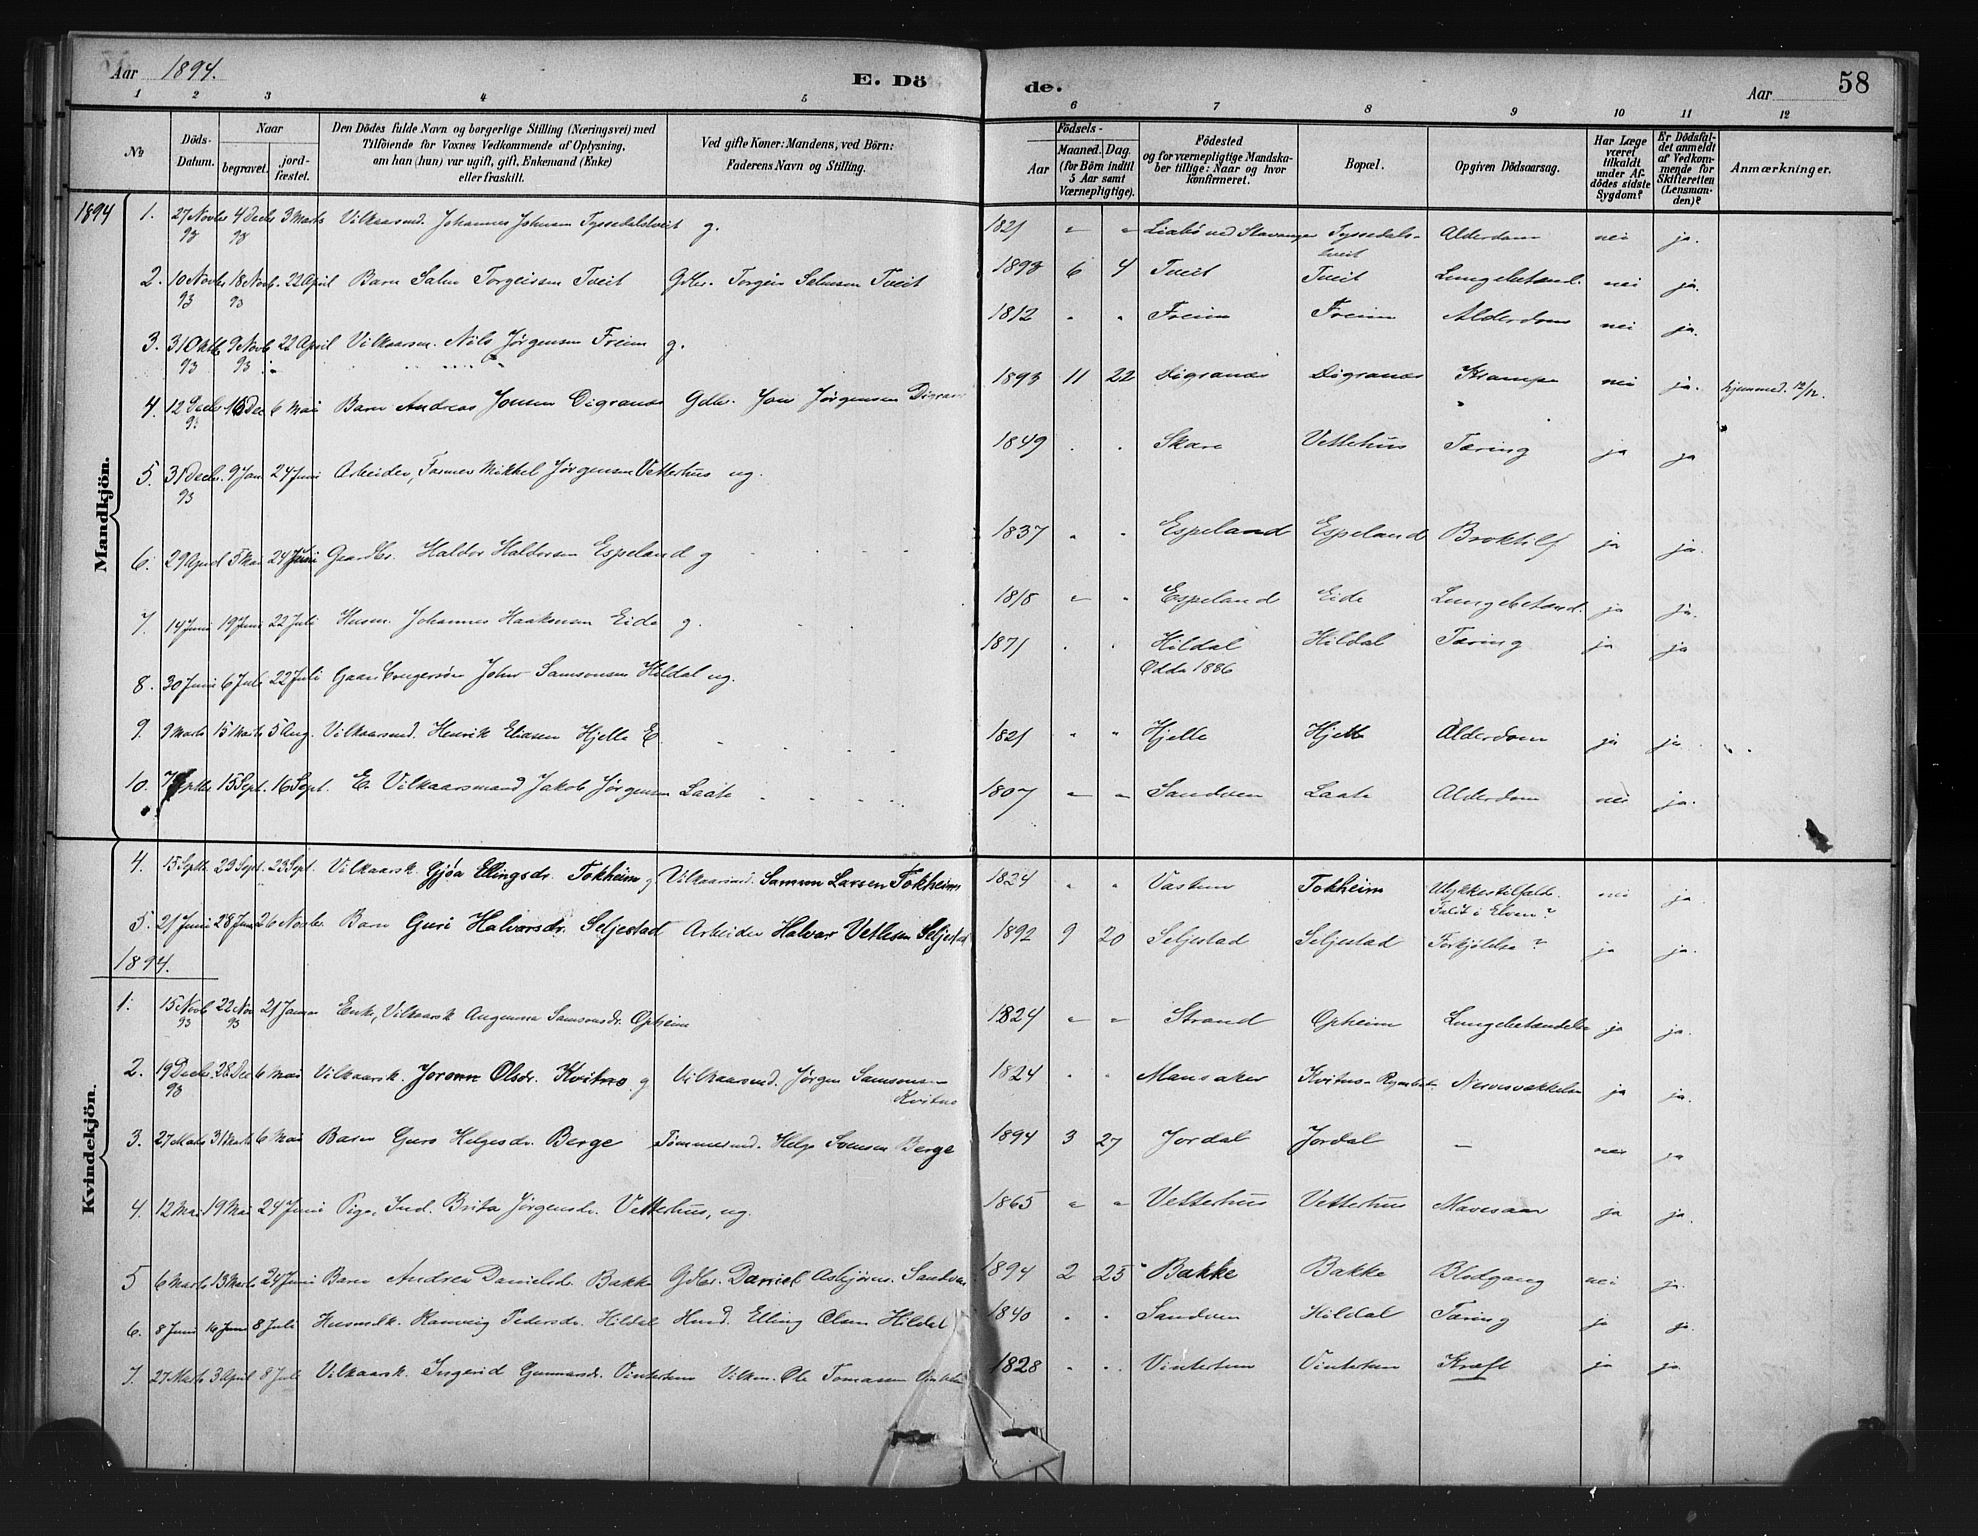 Aar 1894. E. Dö de. Aar 58
1 2 3 4 5 6 7 8 9 10 11 12
No
Döds-Datum.
Naar
begravet.
jord-fæstet.
Den Dödes fulde Navn og borgerlige Stilling (Næringsvei) med
Tilföiende for Voxnes Vedkommende af Oplysning,
om han (hun) var ugift, gift, Enkemand (Enke)
eller fraskilt.
Ved gifte Koner: Mandens, ved Börn:
Faderens Navn og Stilling.
Födsels-
Aar
Maaned. Dag.
(for Börn indtil
5 Aar samt
Værnepligtige).
Födested
og for værnepligtige Mandska-
ber tillige: Naar og hvor
konfirmeret.
Bopæl.
Opgiven Dödsaarsag.
Har Læge
været
tilkaldt
under Af-
dödes sidste
Sygdom?
Er Dödsfal-
det anmeldt
af Vedkom-
mende for
Skifteretten
(Lensman-
den)?
Anmærkninger.
Mandkjön.
1894 1. 27 Novbr 93 4 Decbr 93 3 Marts Vilkaarsmd. Johannes Johnsen Tyssedalstveit g. 1821 " " ved Stavanger Tyssedals-tveit Alderdom nei ja.
2. 10 Novbr 93 18 Novb. 93 22 April Barn Salm Torgeissen Tveit Gdbr. Torgeis Salmsen Tveit 1893 6 4 Tveit Tveit Lungebetænd. nei ja.
3. 31 Oktb 93 9 Novb 93 22 April Vilkaarsm. Nils Jørgensen Freim g. 1812 " " Freim Freim Alderdom nei ja.
4. 12 Decbr 93 16 Dec 6 Mai Barn Andreas Jonsen Digranes Gdbr. Jon Jørgensen Digranes 1893 11 22 Digranes Digranes Krampe nei ja. hjemmed. 12/12.
5. 31 Decbr. 93 9 Jan 24 Juni Arbeider, Mikkel Jørgensen Vetterhus ug. 1849 " " Skare Vettehus Tæring ja ja
6. 29 April 5 Mai 24 Juni Gaardbr. Haldor Haldorsen Espeland g 1837 " " Espeland Espeland Broktilf ja ja.
7. 14 Juni 19 Juni 22 Juli Husm. Johannes Haaksonsen Eide g. 1818 " " Espeland Eide Lungebetænd. ja ja.
8. 30 Juni 6 Juli 22 Juli John Samsonsen Hildal ug. 1871 " " Hildal Odda 1886 Hildal Tæring ja ja
9. 9 Marts 15 Marts 5 Aug. Vilkaarsmd. Henrik Eliasen Hjelle E 1821 " " Hjelle Hjelle Alderdom ja ja
10. 7 Septbr 15 Sept. 16 Sept. E. Vilkaarsmand Jakob Jørgensen Laate 1807 " " Sandven Laate Alderdom nei ja.
Kvindekjön.
4. 15 Septbr. 23 Sept. 23 Sept. Vilkaarsk. Gjøa Ellingsdr. Tokheim g Vilkaarsmd. Samson Larsen Tokheim 1824 " " Vastun Tokheim Ulykkestilfælde. Faldt i Elven? nei ja.
5. 21 Juni 28 Juni 26 Novbr. Barn Guri Halvarsdr. Seljestad Arbeider Halvar Vetlesen Seljestad 1892 9 20 Seljestad Seljestad Forkjølelse? ja ja.
1894.
1. 15 Novb 93 22 Nov 93 21 Januar Enke, Vilkaarsk Samsonsdr. Opheim 1824 " " Strand Opheim Lungebetændelse ja ja.
2. 19 Decbr. 93 28 Dec 6 Mai Vilkaarsk. Joronn Olsdr. Kvitno g Vilkaarsmd. Jørgen Samsonsen Kvitno 1824 " " Mansaker Kvitno Nervesvækkelse ja ja.
3. 27 Marts 31 Marts 6 Mai Barn Guro Helgesdr. Berge Tømmermd. Helge Berge 1894 3 27 Jordal Jordal — nei ja
4. 12 Mai 19 Mai 24 Juni Pige, Ind. Brita Jørgensdr. Vetterhus, ug. 1865 " " Vetterhus Vetterhus Mavesaar ja ja.
5 6 Marts 13 Marts 24 Juni Barn Andrea Danielsd. Bakke Gdbr. Daniel Asbjørns. Sandven 1894 2 25 Bakke Bakke Blodgang nei ja.
6. 8 Juni 16 Juni 8 Juli Husmdk. Ranveig Pedersdr. Hildal Husmd. Elling Olsen Hildal 1840 " " Sandven Hildal Tæring ja ja.
7. 27 Marts 3 April 8 Juli Vilkaarsk. Ingerid Gunnarsdr. Vintertun Vilkm. Ole Tomassen 1828 " " Vintertun Vintertun Kræft ja ja